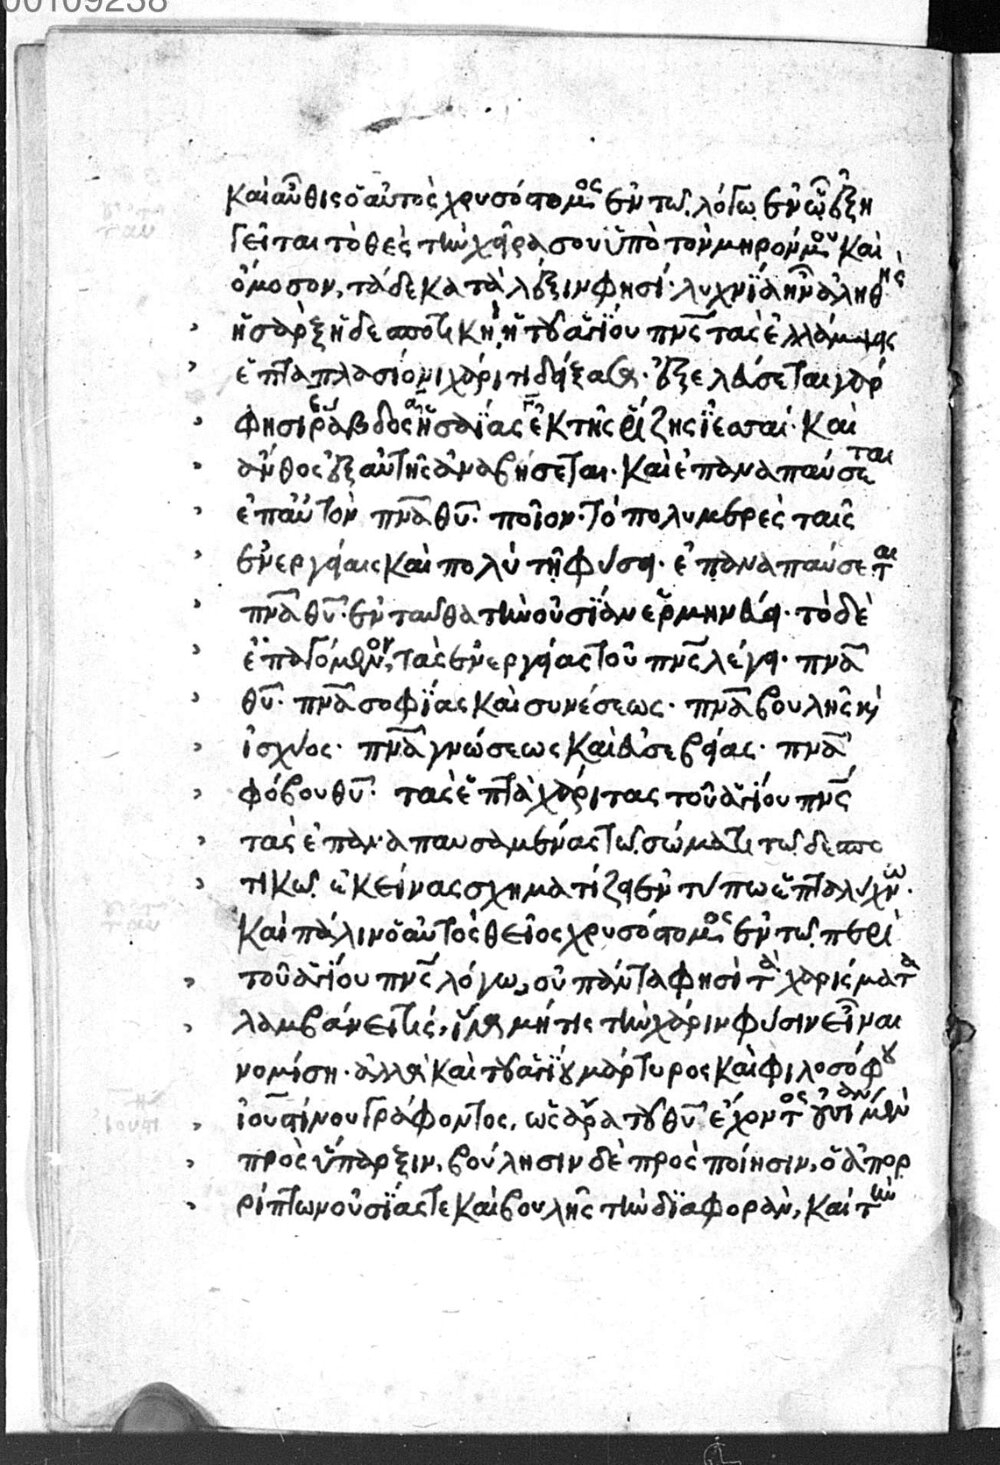 00109238
Καὶ αὖθις ὁ αὐτὸς χρυσόστομος ἐν τῷ λόγῳ ἐν ᾧ ἐξη
γεῖται τὸ θὲς τὴν χεῖρα σου ὑπὸ τὸν μηρόν μου καὶ
ὄμοσον, τάδε κατὰ λέξιν φησί· λυχνία ἦν ἀληθὴς
ἡ σὰρξ ἡ δεσποτικὴ, ἡ τοῦ ἁγίου πνς τὰς ἐλλάμψεις
ἑπταπλασίονι χάριτι δείξασα· ἐξελεύσεται γάρ
φησι ῥάβδος ἡσαΐας ἐκ τῆς ῥίζης ἰεσσαί· Καὶ
ἄνθος ἐξ αὐτῆς ἀναβήσεται· Καὶ ἐπαναπαύσεται
ἐπ αὐτὸν πνα θυ· ποῖον· τὸ πολυμερὲς ταῖς
ἐνεργείαις καὶ πολὺ τῇ φύσει· ἐπαναπαύσεται
πνα θυ· ἐνταῦθα τὴν οὐσίαν ἑρμηνεύει· τὸ δὲ
ἐπαγόμενον, τὰς ἐνεργείας τοῦ πνς λέγει· πνα
θυ· πνα σοφίας καὶ συνέσεως· πνα βουλῆς κὶ
ἰσχύος· πνα γνώσεως καὶ εὐσεβείας· πνα
φόβου θυ· τὰς ἑπτὰ χάριτας τοῦ ἁγίου πνς
τὰς ἐπαναπαυσαμένας τῷ σώματι τῷ δεσπο
τικῷ ἐκείνας σχηματίζει ἐν τύπῳ ἑπταλύχνω·
Καὶ πάλιν ὁ αὐτὸς θεῖος χρυσόστομος ἐν τῷ περὶ
τοῦ ἁγίου πνς λόγῳ, οὐ πάντα φησὶ τὰ χαρίσματα
λαμβάνει τίς, ἵνα μή τις τὴν χάριν φύσιν εἶναι
νομίσῃ· ἀλλὰ καὶ τοῦ ἁγίου μάρτυρος καὶ φιλοσόφου
ἰουστίνου γράφοντος, ὡς ἄρα τοῦ θυ ἔχοντος οὐσίαν μὲν
πρὸς ὕπαρξιν, βούλησιν δὲ πρὸς ποίησιν, ὁ ἀπορ
ρίπτων οὐσίας τε καὶ βουλῆς τὴν διαφορὰν, καὶ τὴν